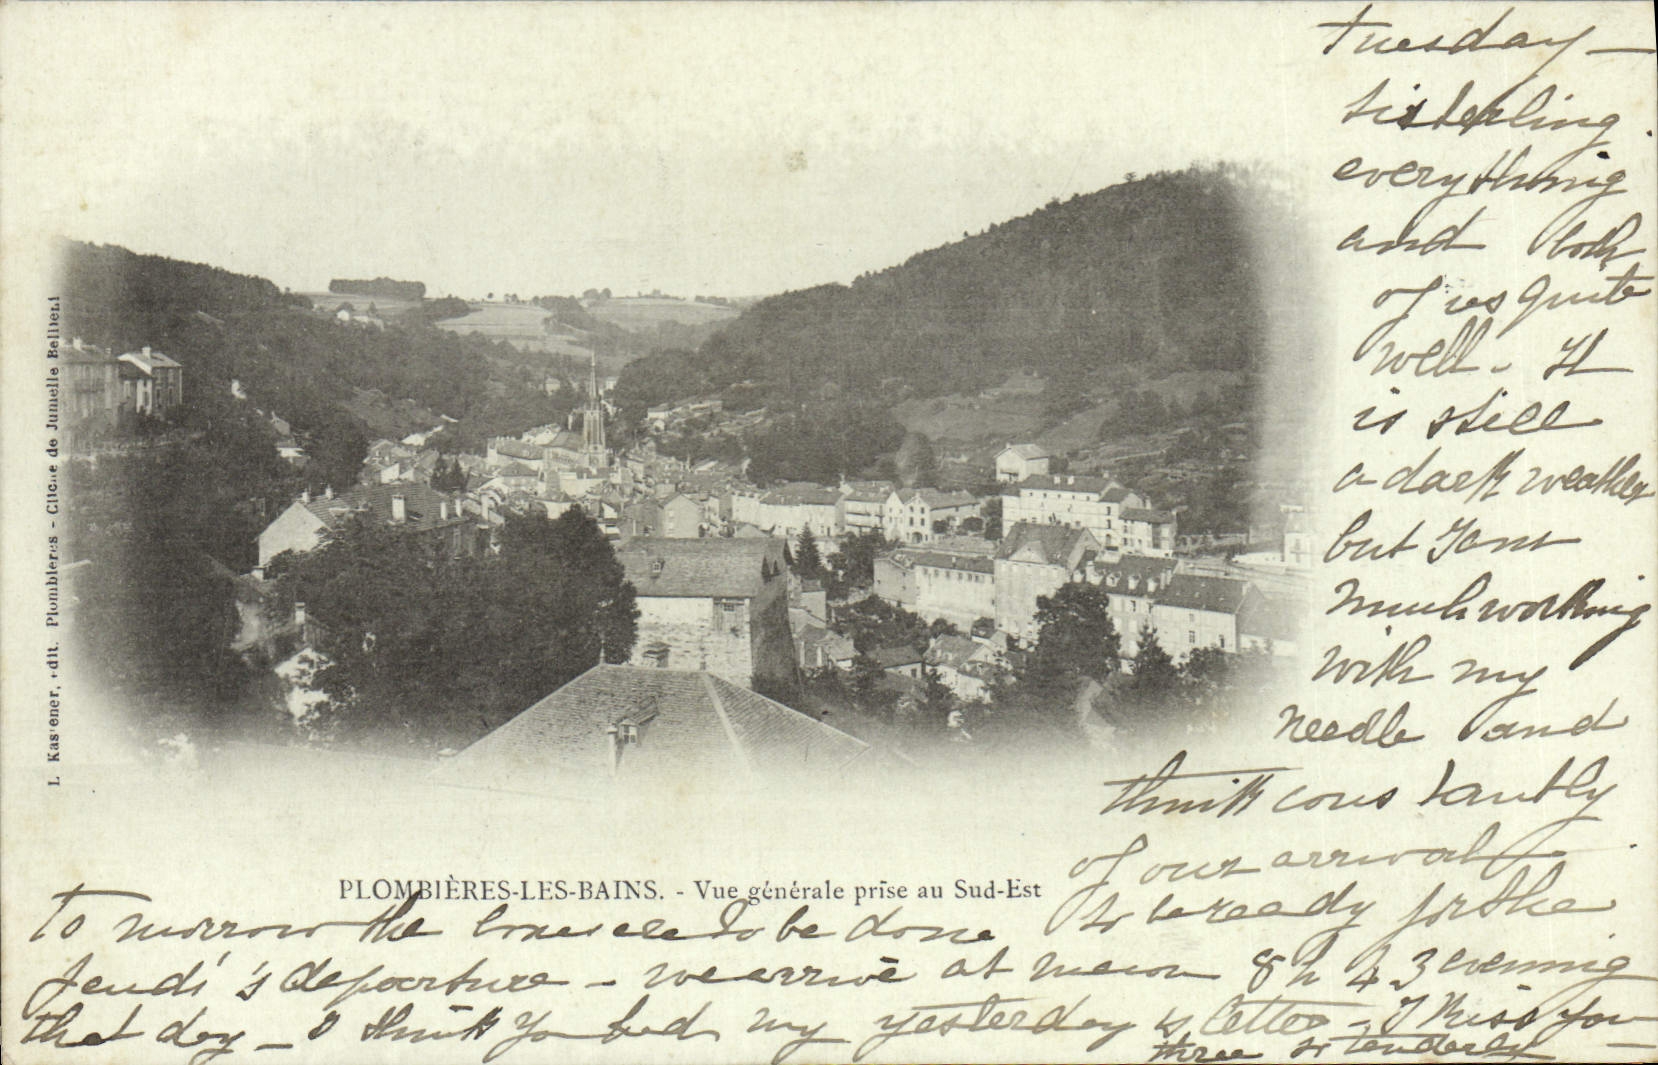 Tuesday —
Sisterling
everything
and both
of us quite
well. It
is still
a dark weather
but I am
much working
with my
needle and
think constantly
of our arrival
to be ready for the
PLOMBIÈRES-LES-BAINS. - Vue générale prise au Sud-Est
L. Kastener, édit. Plombières - Cliché de Jumelle Bellieni
To morrow the to be done
Jeudi's departure - we arrive at 8 h 43 evening
that day — I think you had my yesterday's letter - I kiss you —
three so tenderly